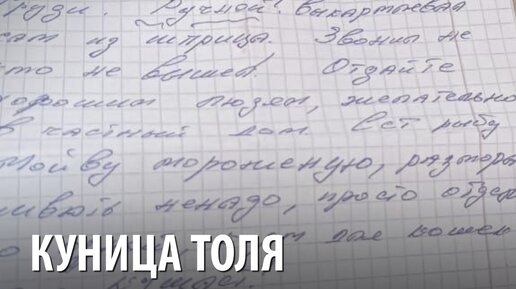 груди. Ручной. Выкармлевал
сам из шприцы. Звонил не
кто не вышел. Отдайте
хорошим людям, желательно
в частный дом. Ест рыбу
мойву мороженую, разморо
ненадо, просто
для кошек
КУНИЦА ТОЛЯ